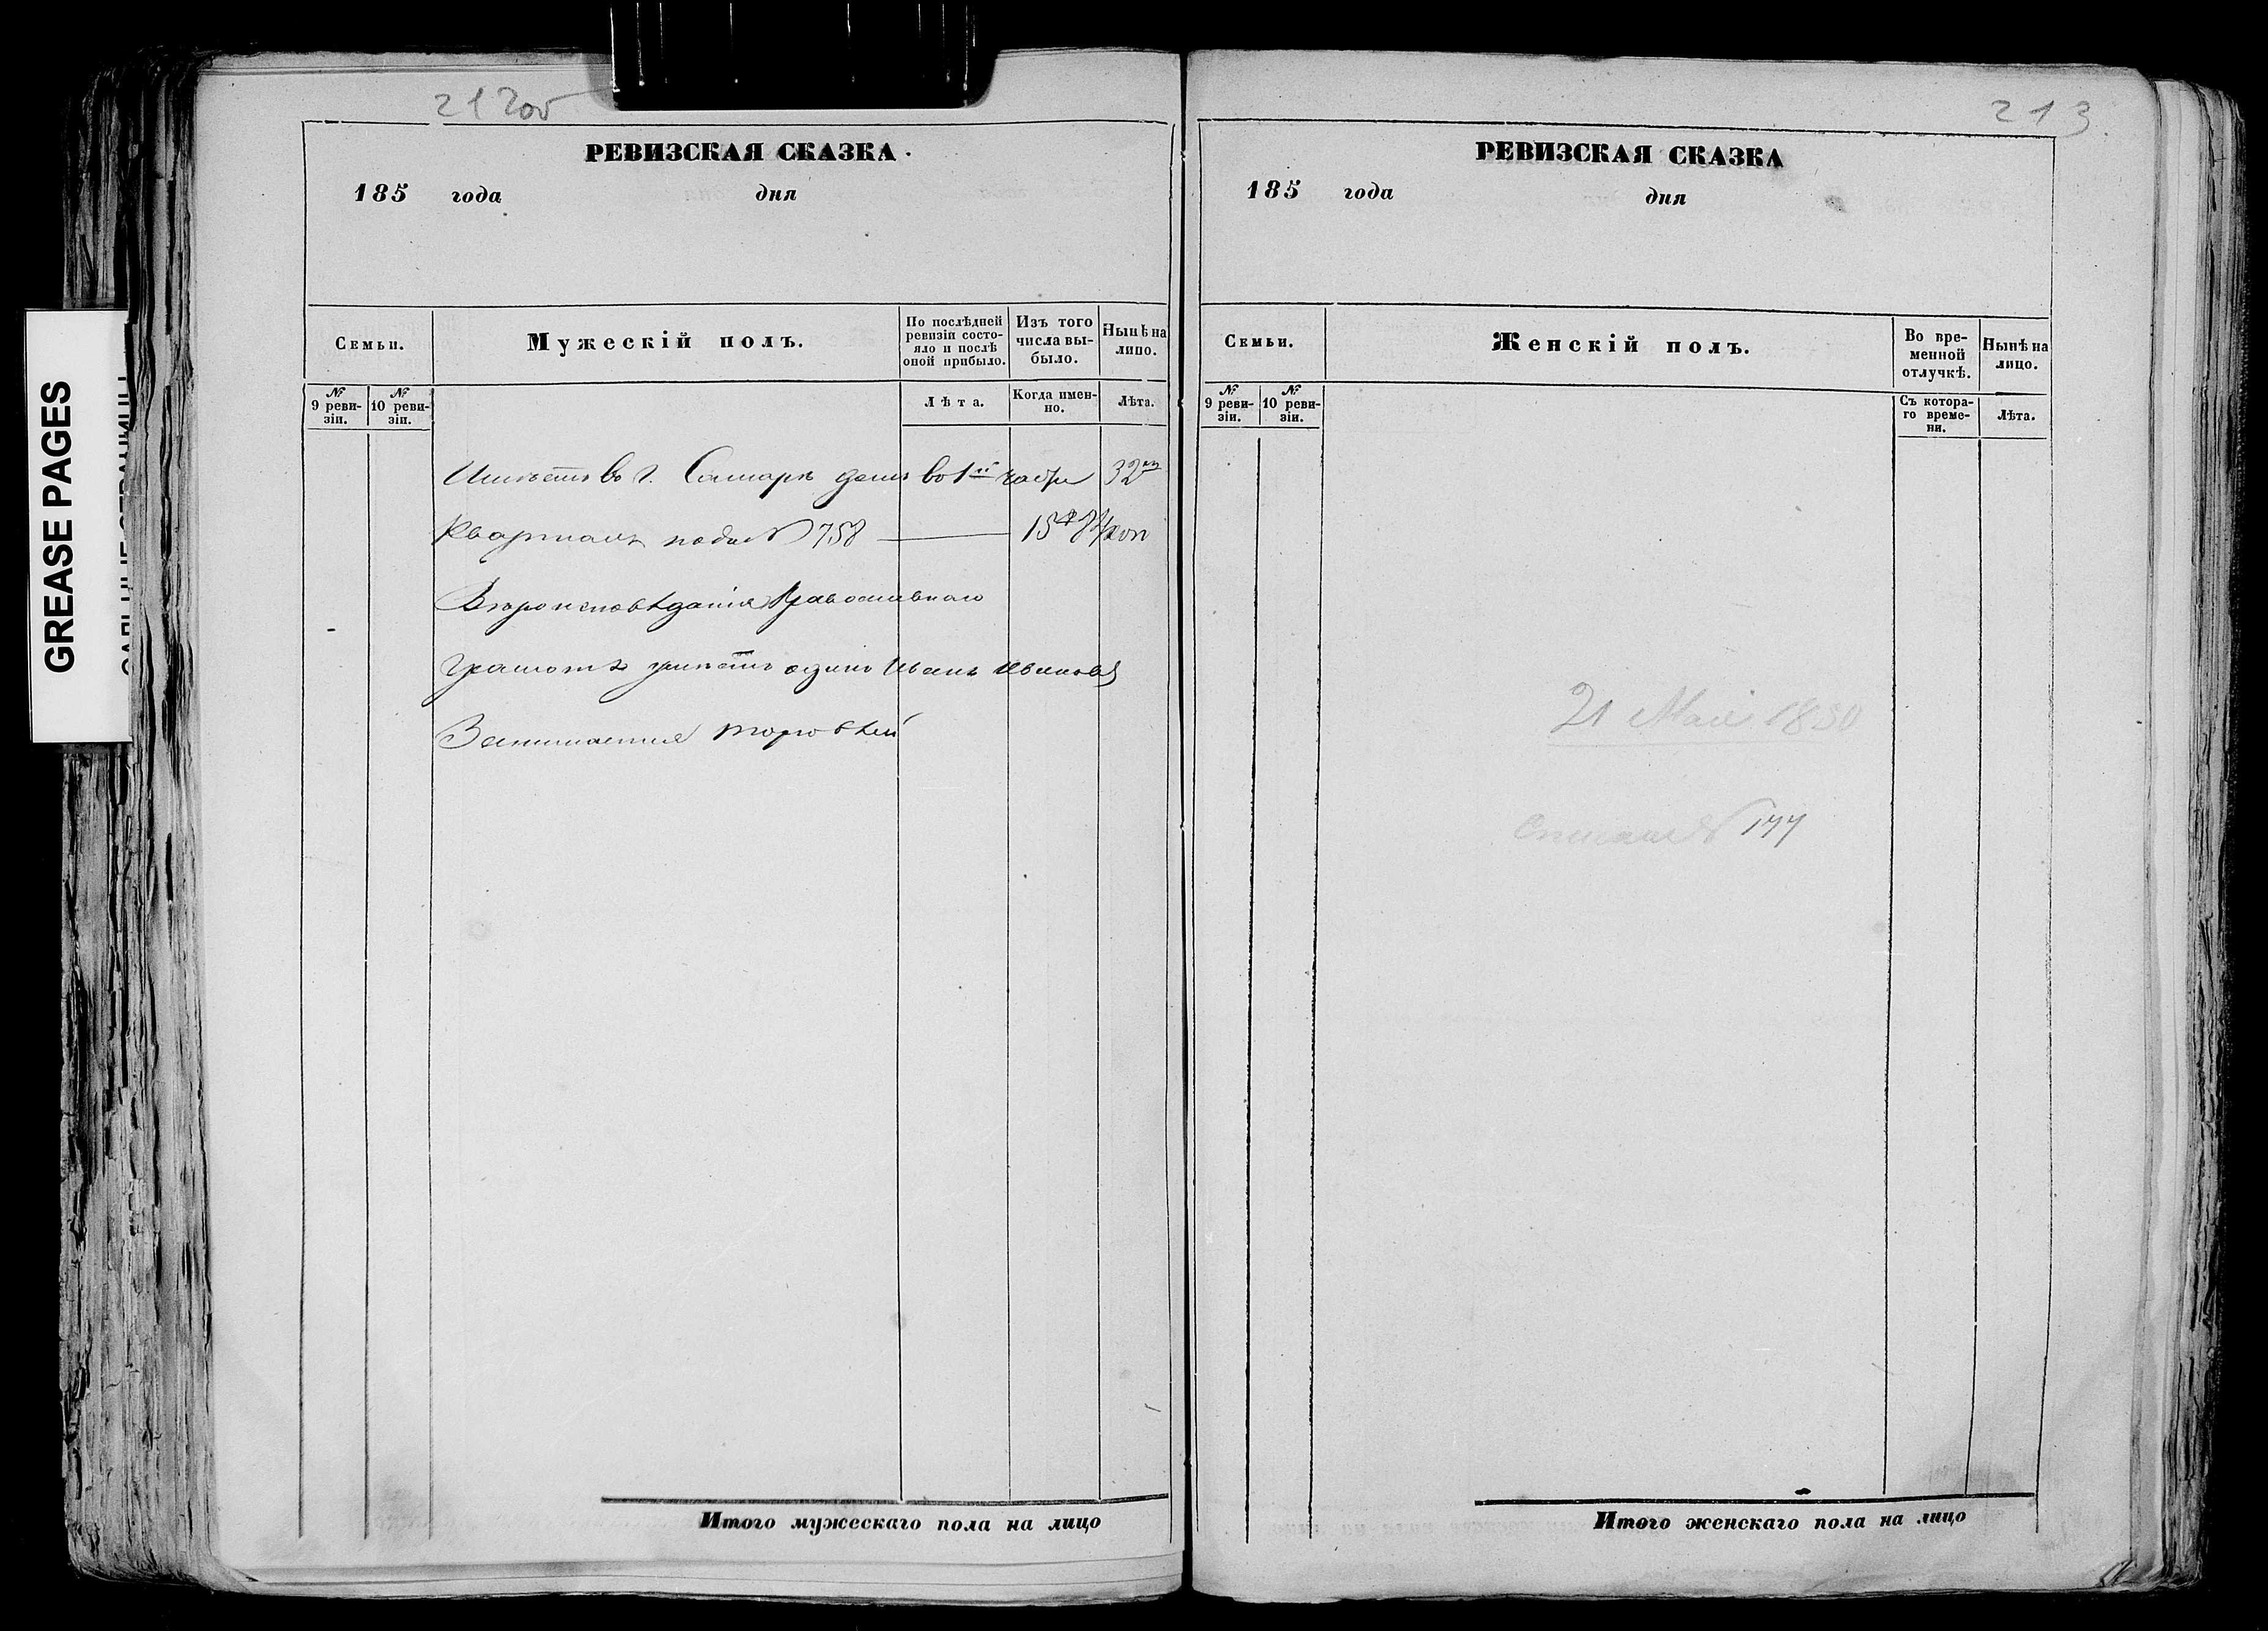 212об
РЕВИЗСКАЯ СКАЗКА
185 года дня
Семьи.
Мужескій полъ.
По послѣдней ревизіи состо-
яло и послѣ оной прибыло.
Изъ того числа вы-
было.
Нынѣ на лицо.
№ 9 реви-
зіи.
№ 10 реви-
зіи.
Лѣта.
Когда имен-
но.
Лѣта.
Имѣетъ въ г. Самарѣ домъ во 1й части 32мъ
Кварталѣ подъ № 758 — 15 коп
Вѣроисповѣданія Православнаго
Грамотѣ умѣетъ одинъ Иванъ Ивановъ
Занимается торговлей
Итого мужескаго пола на лицо
213.
РЕВИЗСКАЯ СКАЗКА
185 года дня
Семьи.
Женскій полъ.
Во вре-
менной
отлучкѣ.
Нынѣ на
лицо.
№ 9 реви-
зіи.
№ 10 реви-
зіи.
Съ котора-
го време-
ни.
Лѣта.
21 Мая 1850
№ 177
Итого женскаго пола на лицо
GREASE PAGES